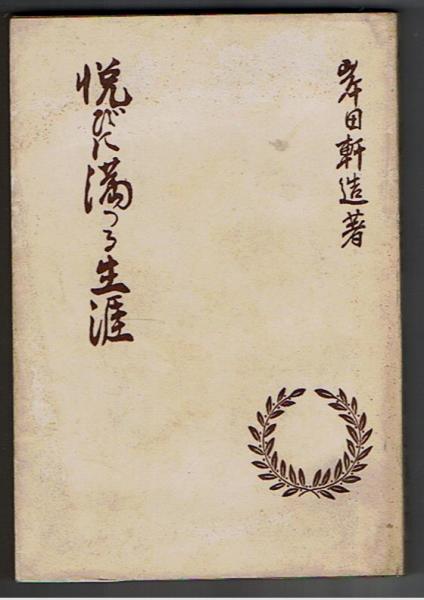 岸田軒造著
悦びに満つる生涯